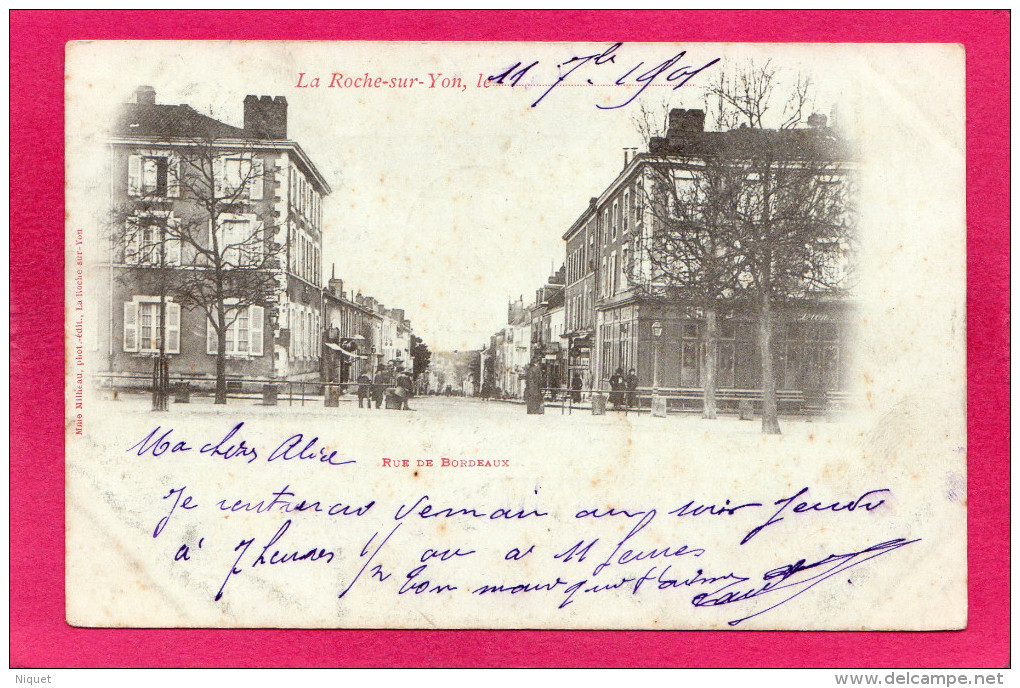 La Roche-sur-Yon, le 11 7bre 1901
Mme Milheau, phot.-édit., La Roche sur-Yon
Ma chère Alice
RUE DE BORDEAUX
Je rentrerais demain au soir Jeudi
à 7 heures 1/2 ou à 11 heures
bon
Niquet
www.delcampe.net